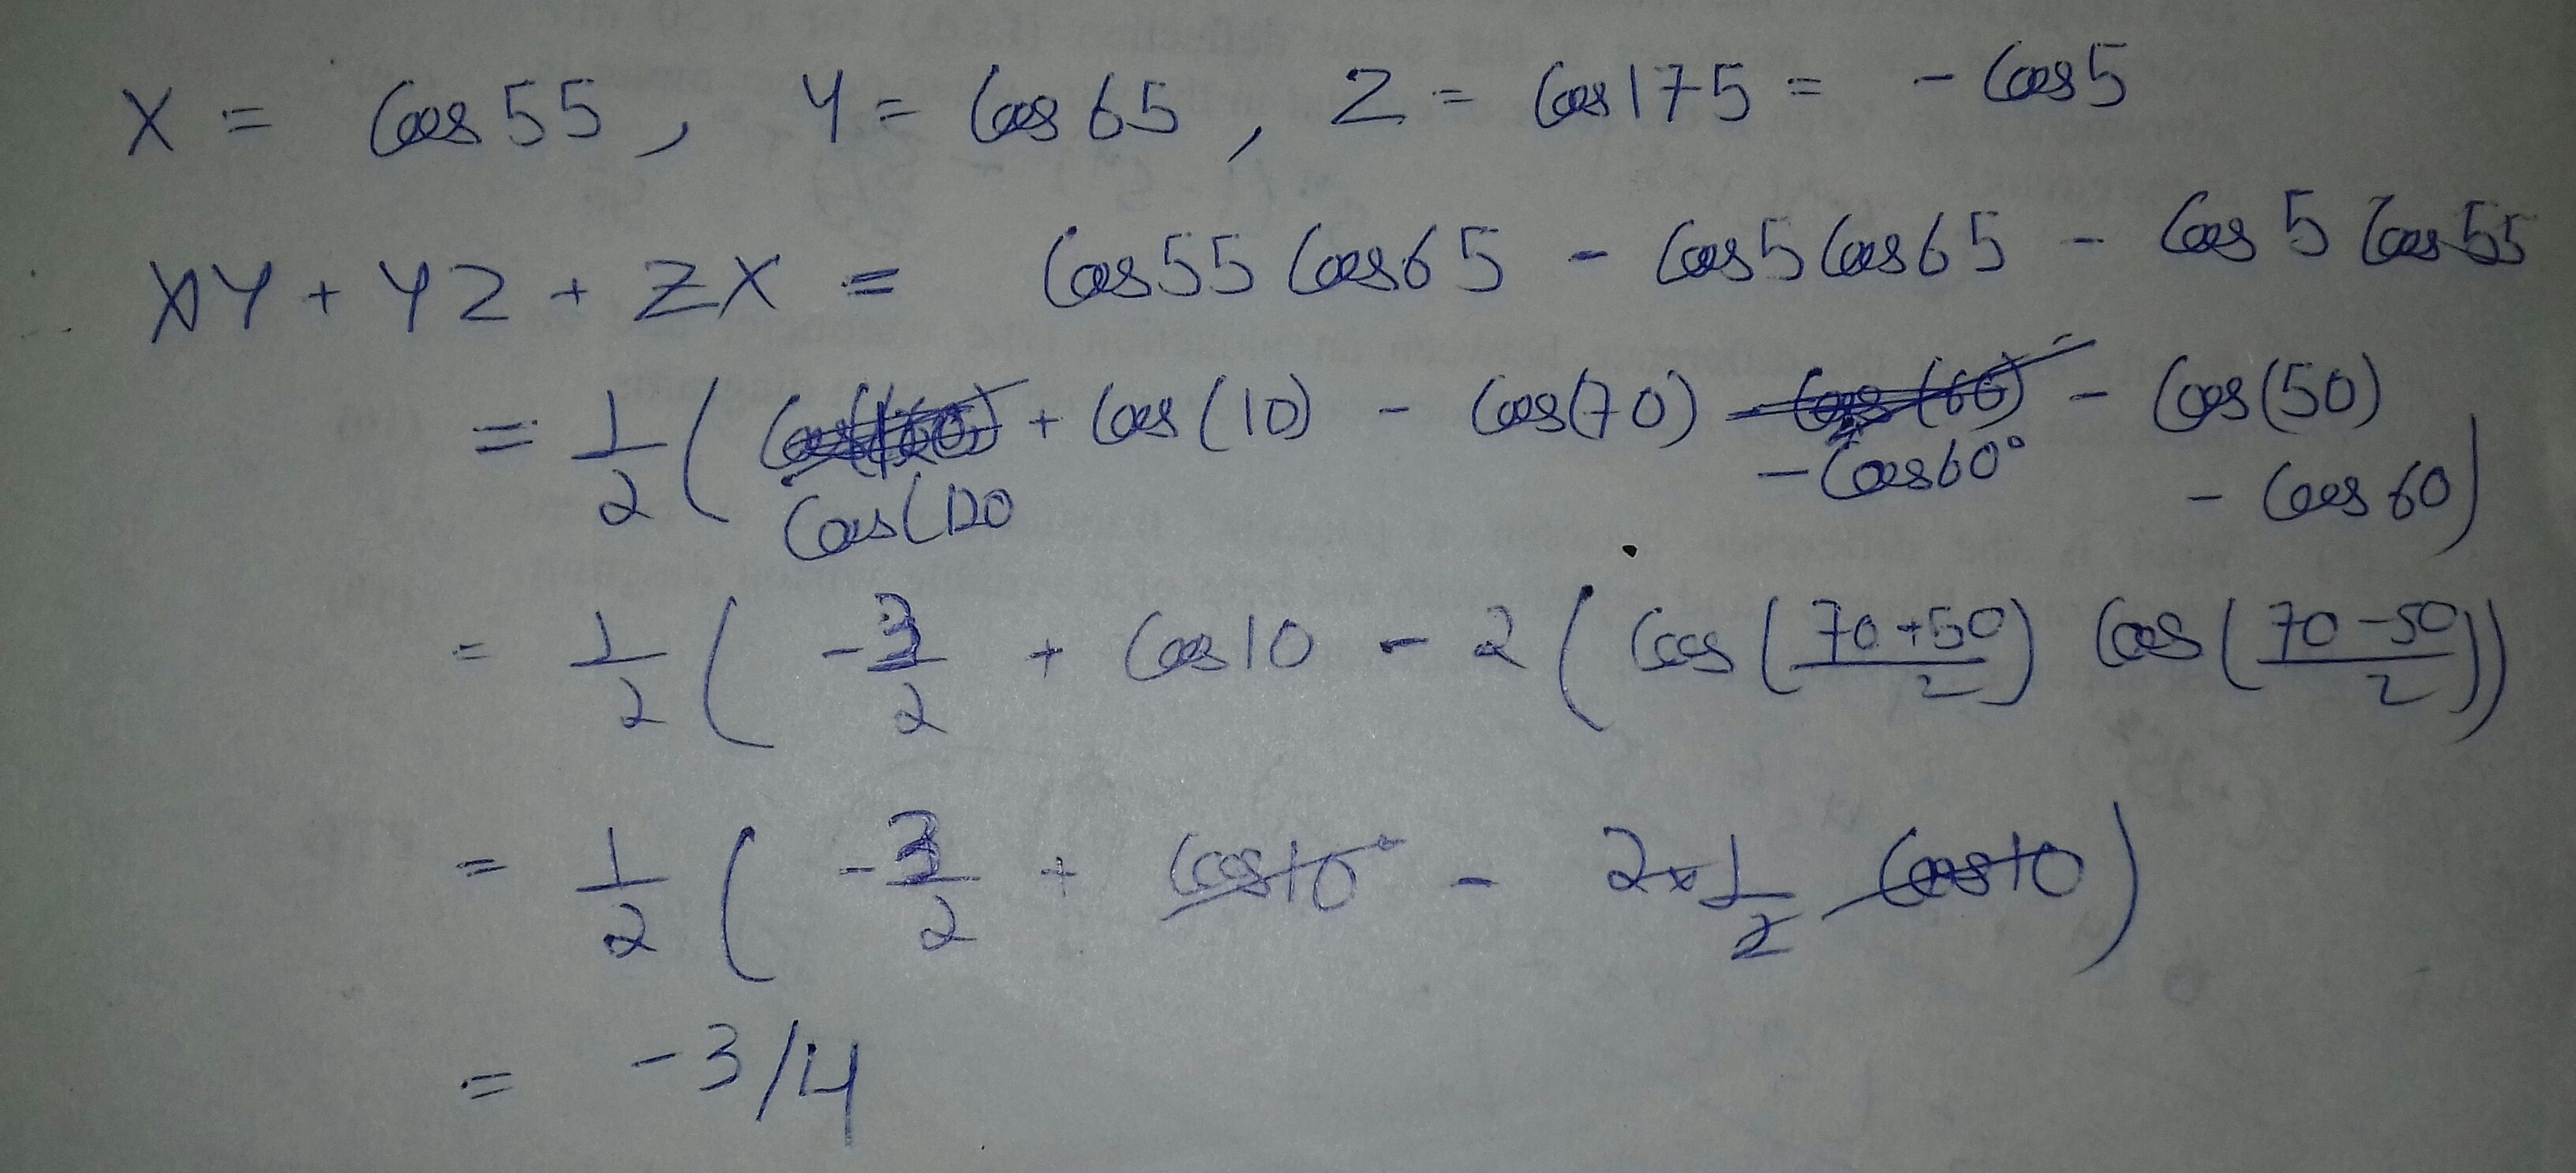 X = Cos 55, Y = Cos 65, Z = Cos 175 = - Cos 5
XY + YZ + ZX = Cos 55 Cos 65 - Cos 5 Cos 65 - Cos 5 Cos 55
= 1/2 ( Cos(120 + Cos (10) - Cos(70) - Cos 60° - Cos (50) - Cos 60 )
= 1/2 ( -3/2 + Cos 10 - 2 ( Cos ( 70+50/2 ) Cos ( 70-50/2 ) )
= 1/2 ( -3/2 + Cos 10° - 2×1/2 Cos 10 )
= -3/4